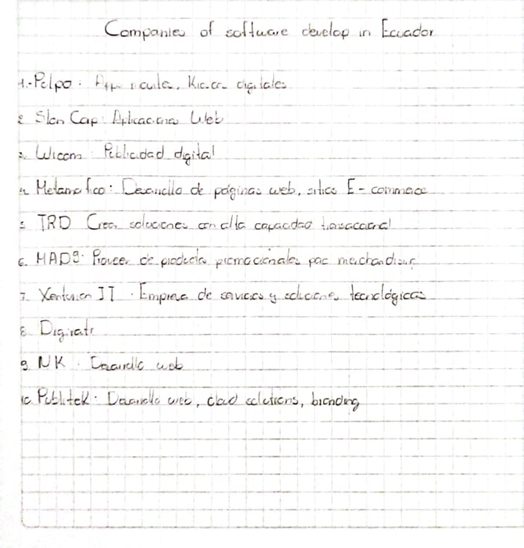 Companies of software develop in Ecuador
1.- Pulpo: App , digitales
2. Slon Cap: Aplicaciones Web
3. Publicidad digital
4. : Desarrollo de páginas web, sitios E-commerce
5. TRD Crea soluciones con alta capacidad transaccional
6. : Proveer de productos promocionales para merchandising
7. IT: Empresa de servicios y soluciones tecnológicas
8.
9 NK: Desarrollo web
10. Publitek: Desarrollo web, cloud solutions, branding